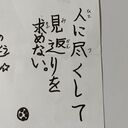 人に尽くして
見返りを
求めない。